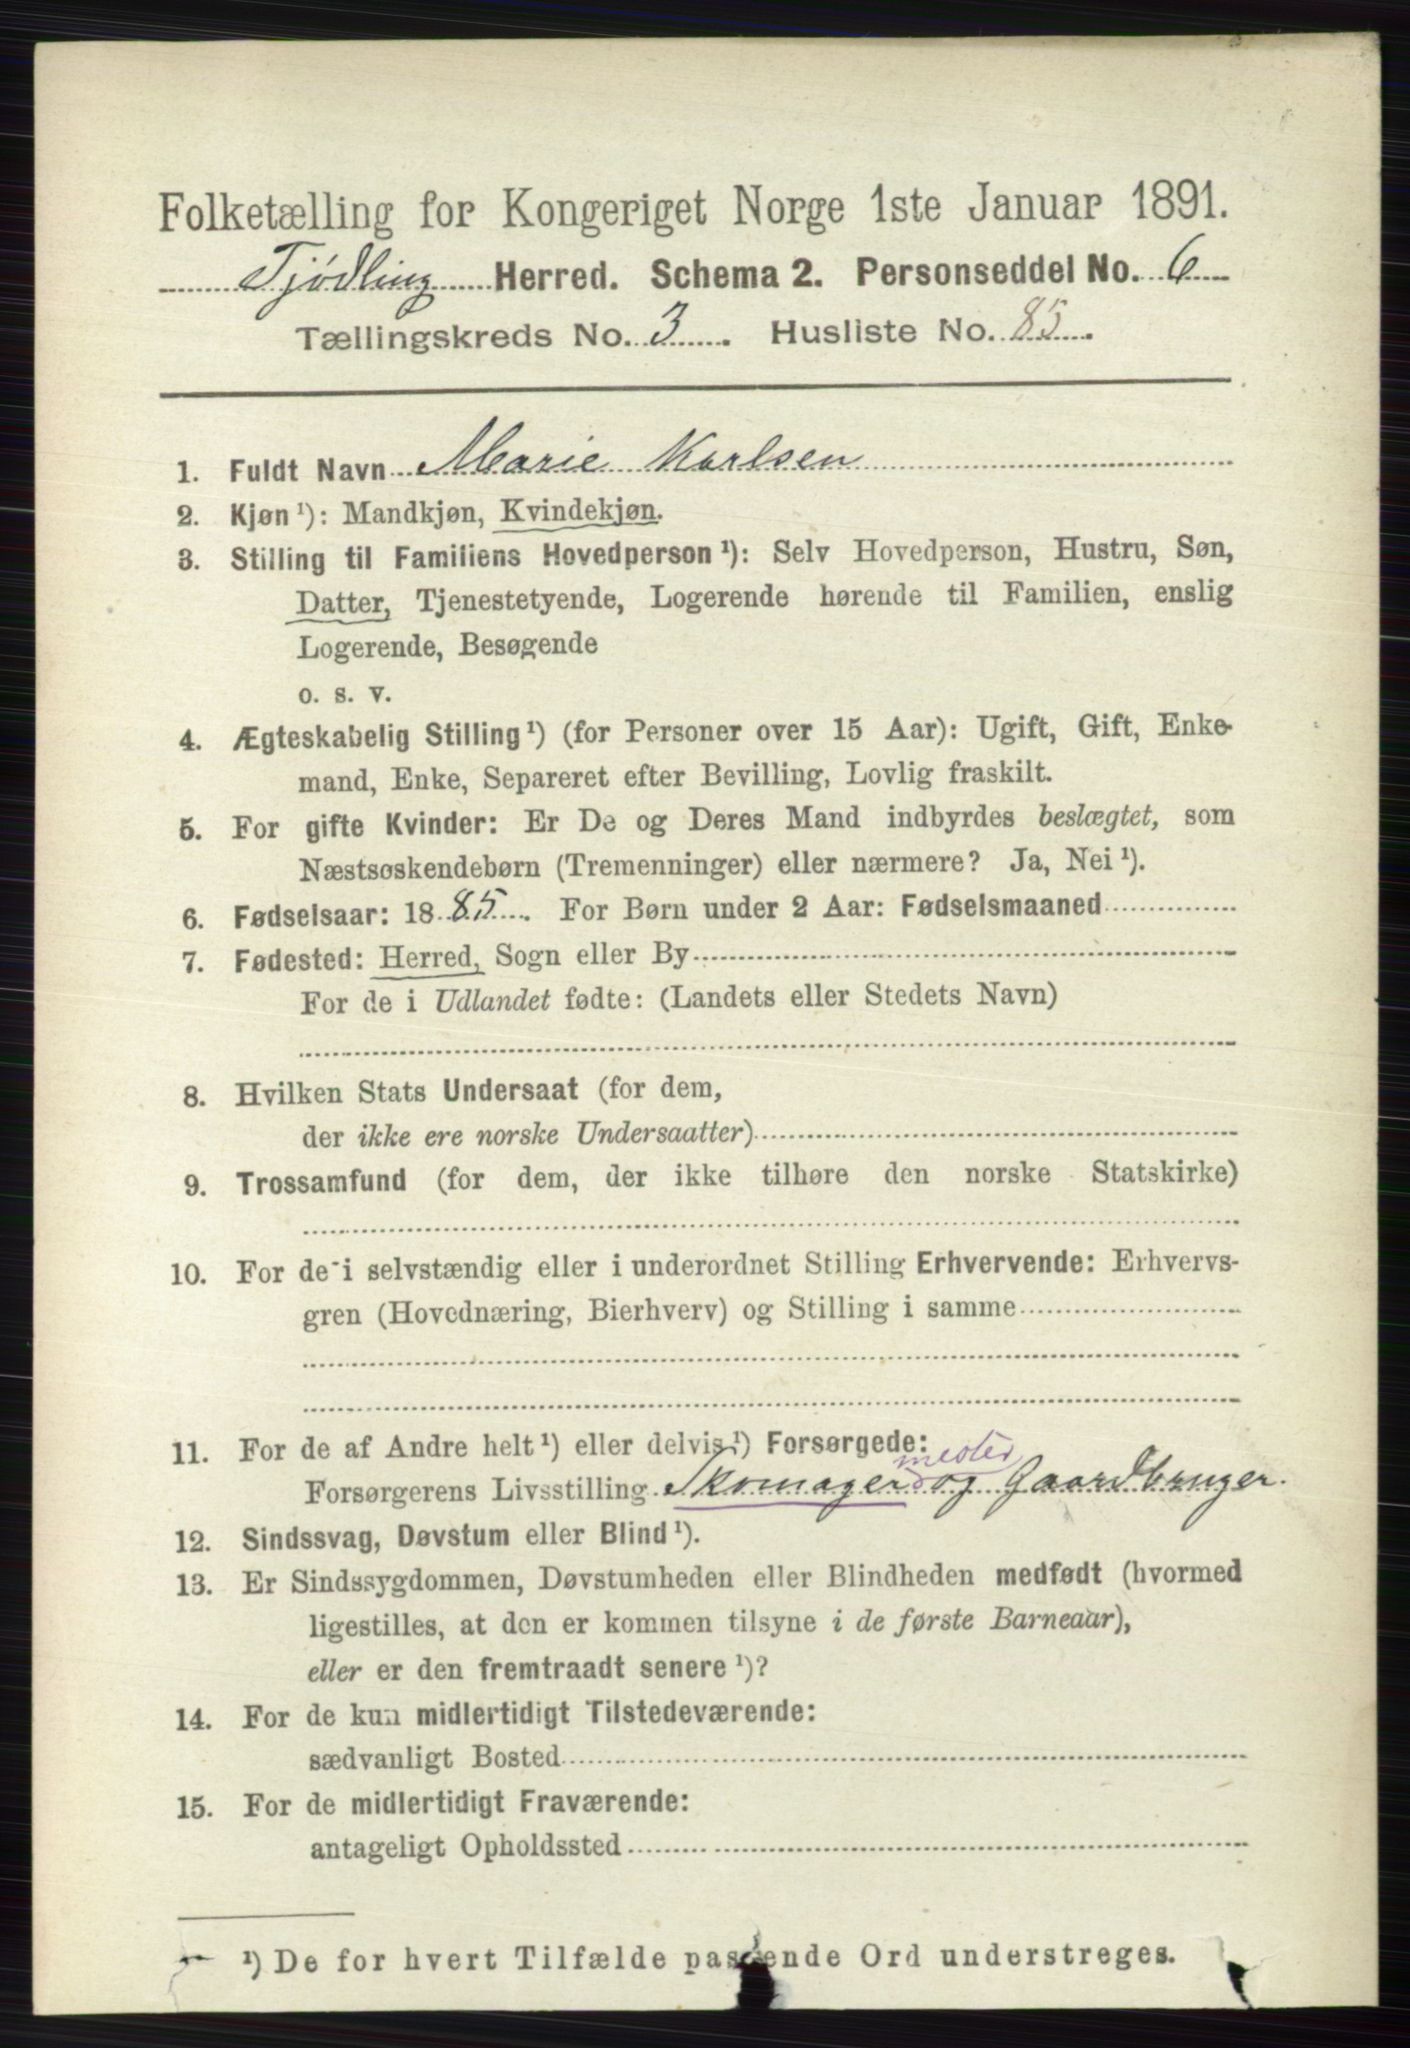 Folketælling for Kongeriget Norge 1ste Januar 1891.
Tjødling Herred. Schema 2. Personseddel No. 6
Tællingskreds No. 3. Husliste No. 85.
1. Fuldt Navn Marie Karlsen
2. Kjøn ¹): Mandkjøn, Kvindekjøn.
3. Stilling til Familiens Hovedperson ¹): Selv Hovedperson, Hustru, Søn,
Datter, Tjenestetyende, Logerende hørende til Familien, enslig
Logerende, Besøgende
o. s. v.
4. Ægteskabelig Stilling ¹) (for Personer over 15 Aar): Ugift, Gift, Enke-
mand, Enke, Separeret efter Bevilling, Lovlig fraskilt.
5. For gifte Kvinder: Er De og Deres Mand indbyrdes beslægtet, som
Næstsøskendebørn (Tremenninger) eller nærmere? Ja, Nei ¹).
6. Fødselsaar: 1885. For Børn under 2 Aar: Fødselsmaaned
7. Fødested: Herred, Sogn eller By
For de i Udlandet fødte: (Landets eller Stedets Navn)
8. Hvilken Stats Undersaat (for dem,
der ikke ere norske Undersaatter)
9. Trossamfund (for dem, der ikke tilhøre den norske Statskirke)
10. For de i selvstændig eller i underordnet Stilling Erhvervende: Erhvervs-
gren (Hovednæring, Bierhverv) og Stilling i samme
11. For de af Andre helt ¹) eller delvis ¹) Forsørgede:
mester
Forsørgerens Livsstilling Skomager og Gaardbruger.
12. Sindssvag, Døvstum eller Blind ¹).
13. Er Sindssygdommen, Døvstumheden eller Blindheden medfødt (hvormed
ligestilles, at den er kommen tilsyne i de første Barneaar),
eller er den fremtraadt senere ¹)?
14. For de kun midlertidigt Tilstedeværende:
sædvanligt Bosted
15. For de midlertidigt Fraværende:
antageligt Opholdssted
¹) De for hvert Tilfælde passende Ord understreges.